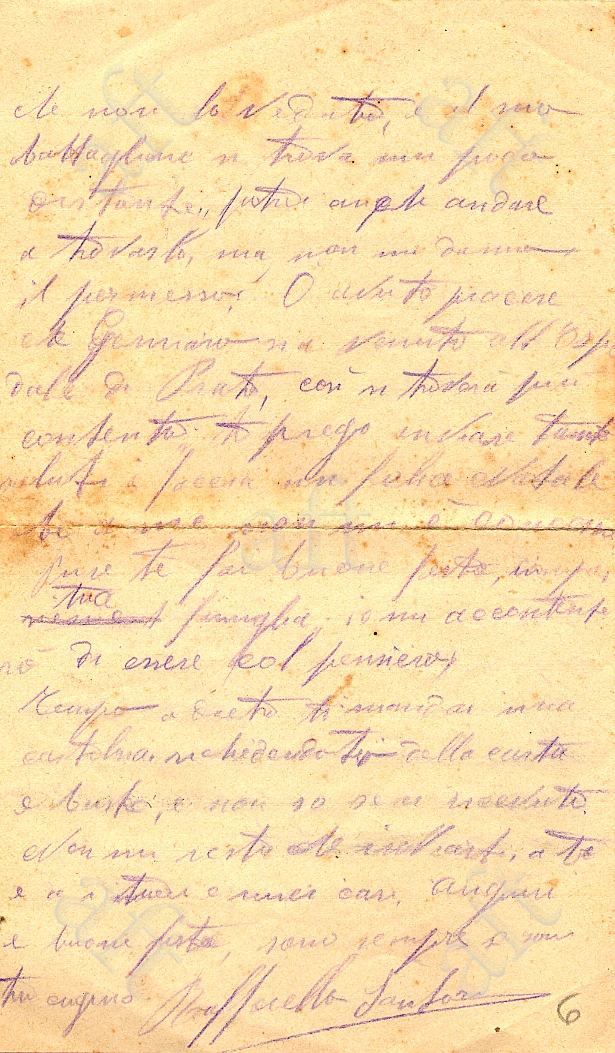 che non lo veduto, e il suo
battaglione si trova un poco
distante, potrei anche andare
a trovarlo, ma non mi danno
il permesso. O avuto piacere
che Gennaro sia venuto all'Ospe
dale di Prato, così si troverà più
contento, ti prego inviare tanti
saluti e facceva un felice Natale
a me non mi è concesso
pure te fai buone feste, in
tua famiglia, io mi accontente
rò di essere col pensiero,
tempo adietro ti mandai una
cartolina richiedendoti della carta
e buste, e non so se ai ricevuto.
Non mi resta che inviarti, a te
e a i tuoi e miei cari, auguri
e buone feste, sono sempre
tuo cugino Raffaello Santoro
6
aft
aft
aft
aft
aft